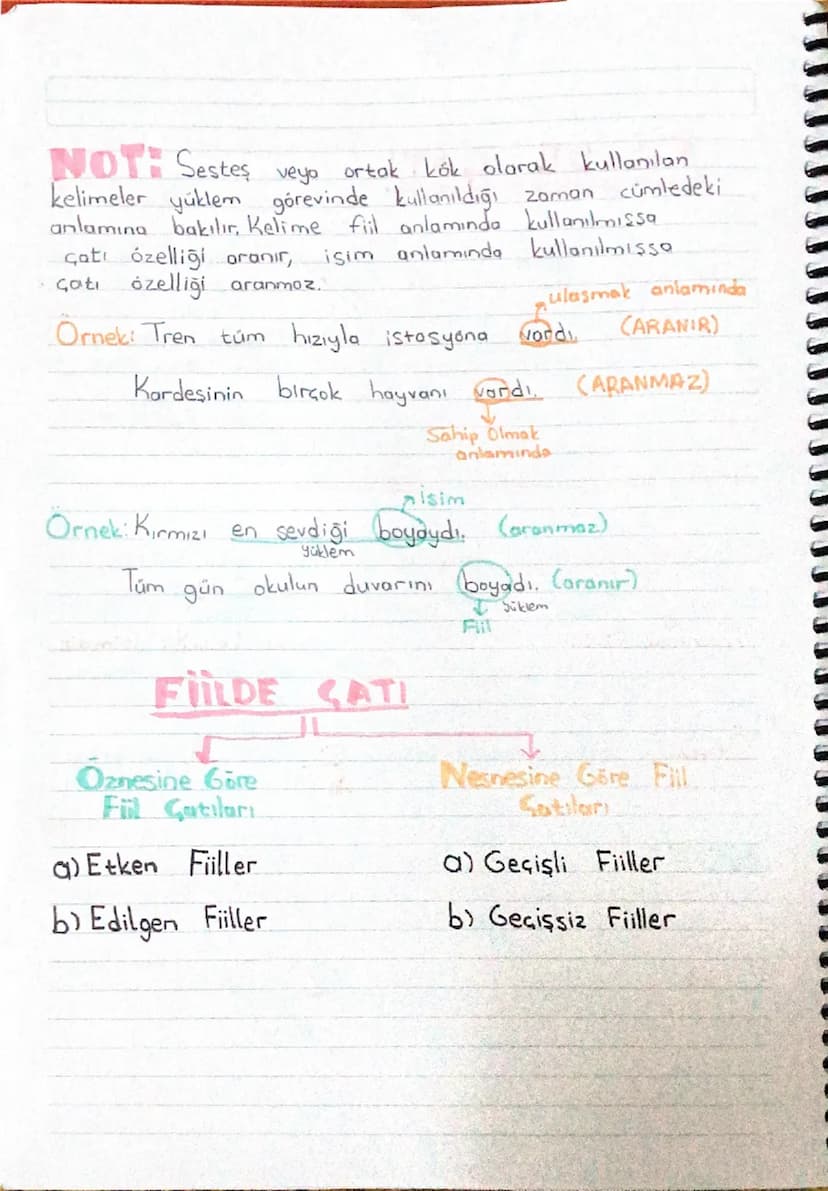 NOT: Sesteş veya ortak kök olarak kullanılan
kelimeler yüklem görevinde kullanıldığı zaman cümledeki
anlamına bakılır. Kelime fiil anlamında kullanılmışsa
çatı özelliği aranır, isim anlamında kullanılmışsa
çatı özelliği aranmaz.
ulaşmak anlamında
Örnek: Tren tüm hızıyla istasyona vardı. (ARANIR)
Kardeşinin birçok hayvanı vardı. (ARANMAZ)
Sahip Olmak
anlamında
isim
Örnek: Kırmızı en sevdiği boyaydı. (aranmaz)
yüklem
Tüm gün okulun duvarını boyadı. (aranır)
yüklem
Fiil
FİİLDE ÇATI
Öznesine Göre
Fiil Çatıları
Nesnesine Göre Fiil
Çatıları
a) Etken Fiiller
b) Edilgen Fiiller
a) Geçişli Fiiller
b) Geçişsiz Fiiller